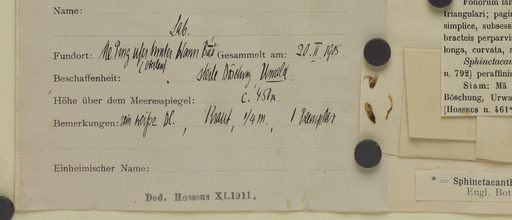 Name:
Sab.
Fundort: Me Ping Gesammelt am: 20. II 1905
Beschaffenheit: steile Böschung Urwald
Höhe über dem Meeresspiegel: c. 450 m.
Bemerkungen: rein weiße Bl., Kraut, 1/4 m, 1 Exemplar
Einheimischer Name:
Ded. Hosseus XI.1911.
Foliorum lam
triangulari; pagin
simplice, subsess
bracteis perparvis
longa, curvata, a
Sphinctacan
n. 792) peraffinis
Siam: Mä
Böschung, Urwa
(Hosseus n. 461
* = Sphinctacanth
Engl. Bot